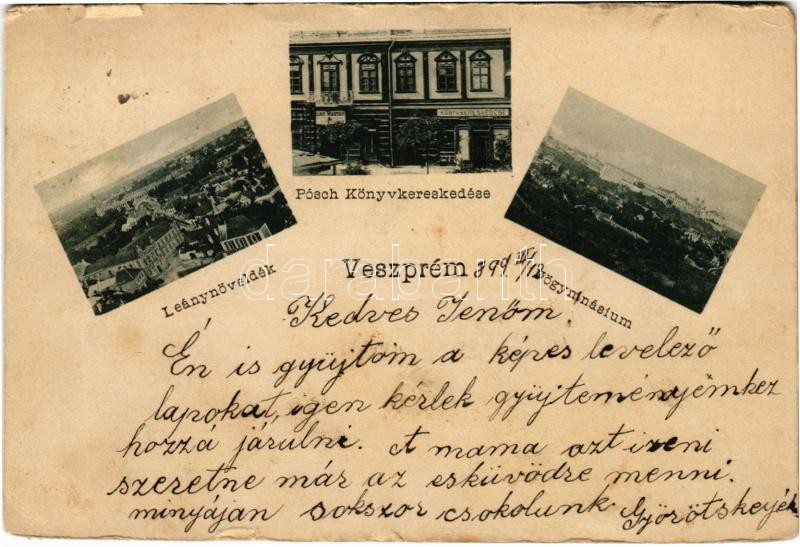 LÁSZ MÁRTON
KÖNYVKERESKEDÉSE
Pósch Könyvkereskedése
Leánynöveldék
Veszprém 899.
Főgymnásium
darabanth
Kedves Jenőm.
Én is gyüjtom a képes levelező
lapokat, igen kérlek gyüjteményemhez
hozzá járulni. A mama azt izeni
szeretne már az esküvödre menni.
minyájan sokszor csokolunk